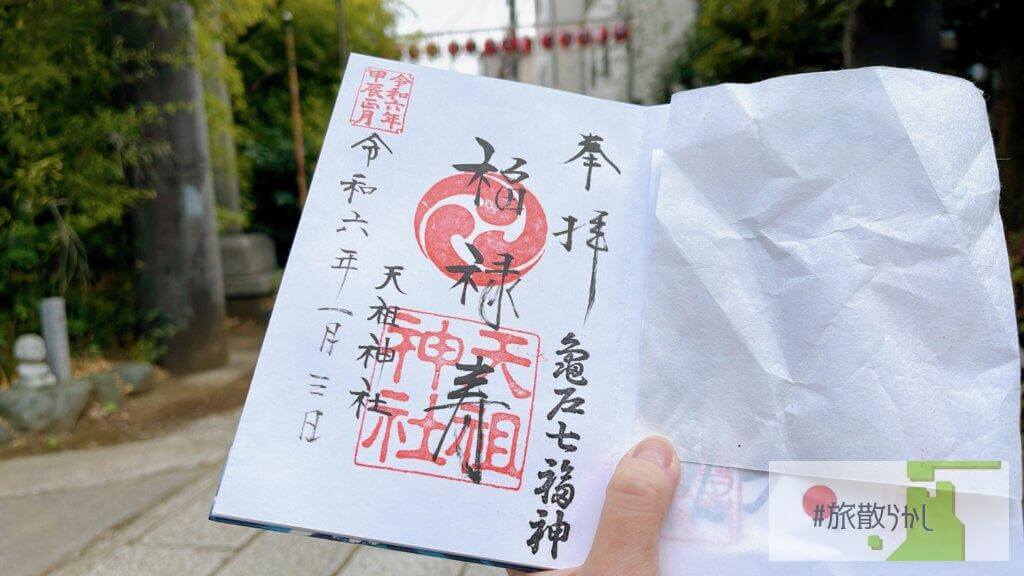 奉拝
亀戸七福神
福禄寿
天祖神社
天祖
神社
令和六年一月三日
令和六年
甲辰正月
#旅散らかし